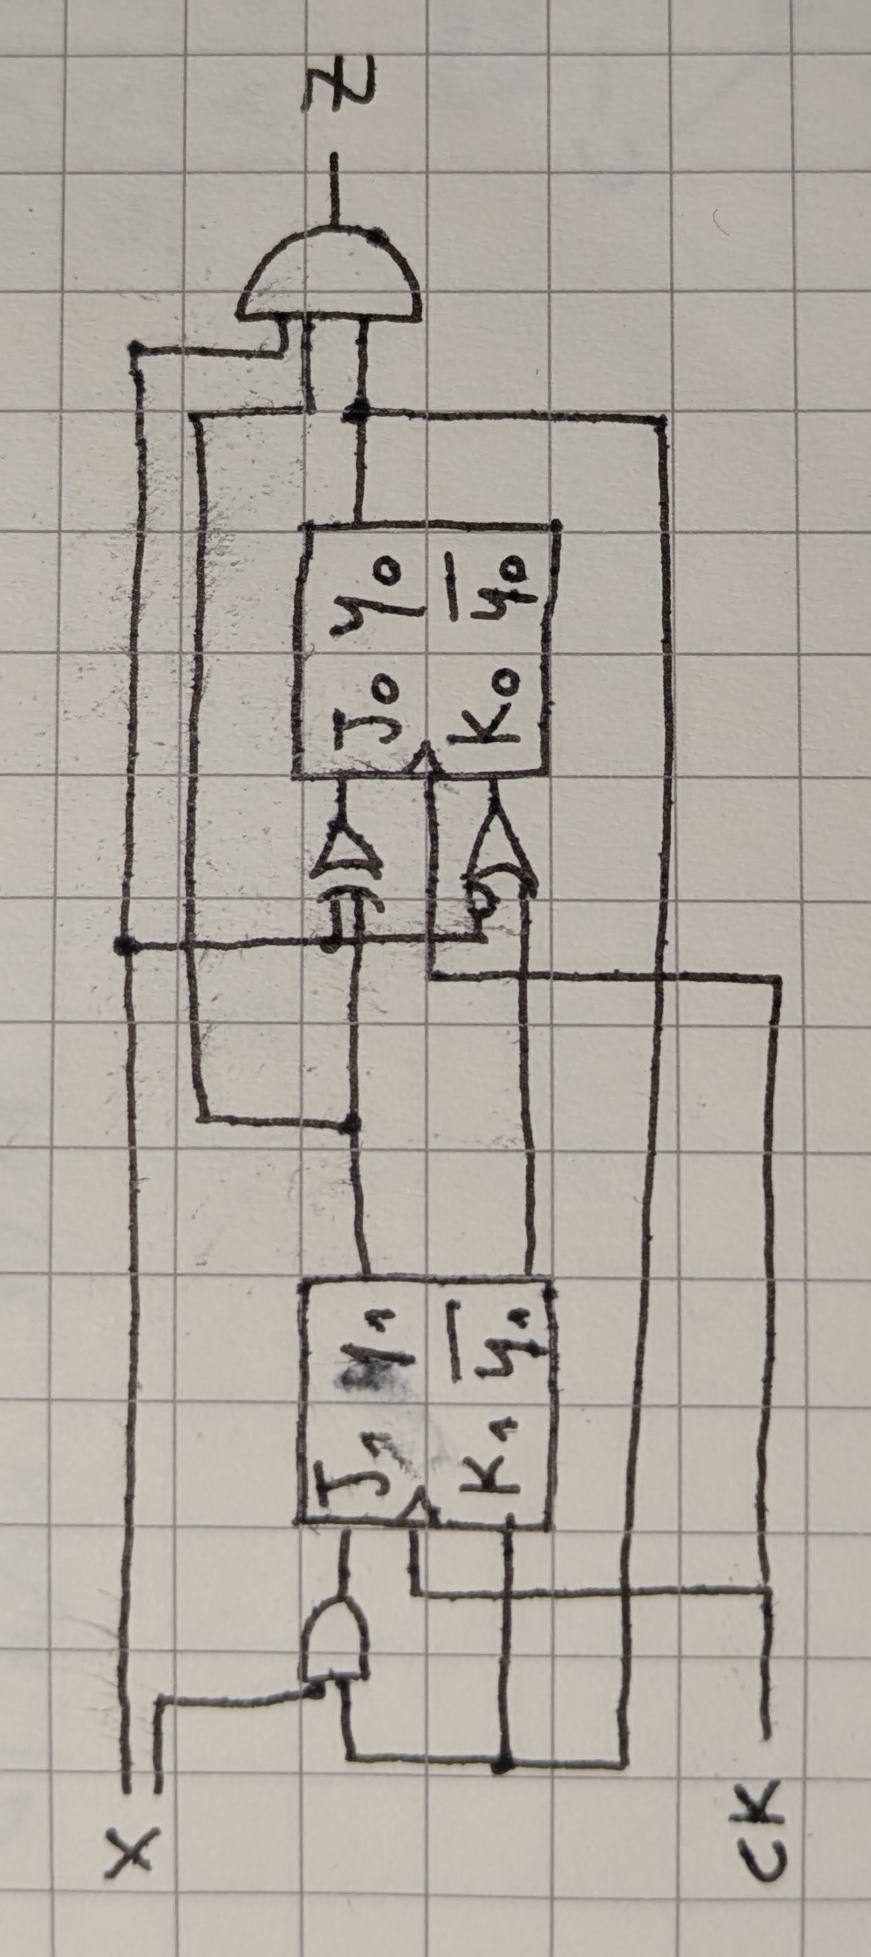 X
J₁ y₁
K₁ y̅₁
J₀ y₀
K₀ y̅₀
Z
CK